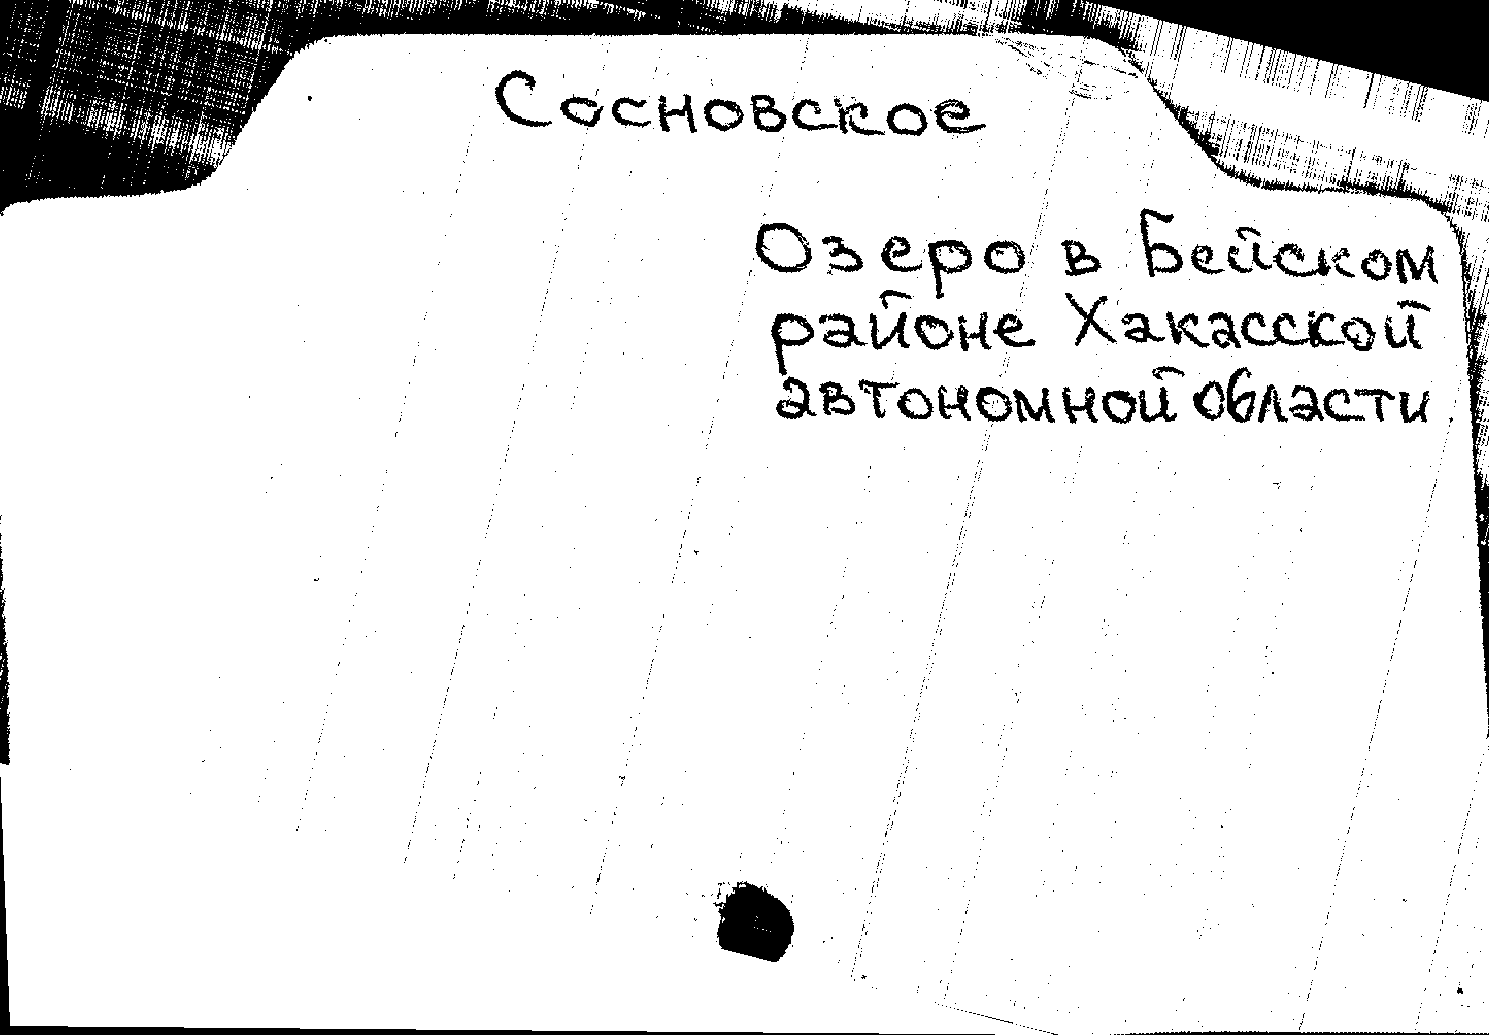 Сосновское
Озеро в Бейском
районе Хакасской
автономной области